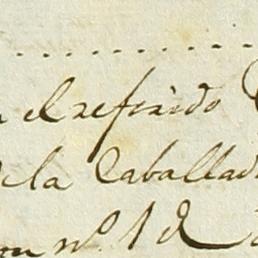 el referido
de la Caballad
on nº. 1 d